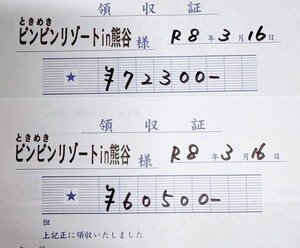 領収証
ときめき
ピンピンリゾートin熊谷 様 R8年3月16日
★ ¥72300-
領収証
ときめき
ピンピンリゾートin熊谷 様 R8年3月16日
★ ¥60500-
但
上記正に領収いたしました